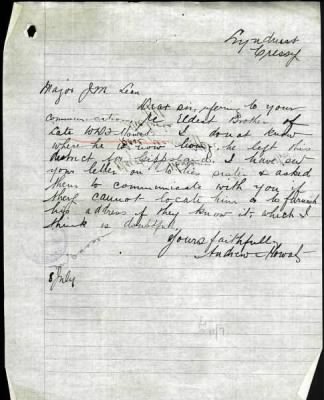 Lyndhurst
Cressy
Major J.M. Lean
Dear Sir, referring to your
communication re Eldest Brother of
Late Howat. I do not know
where he is now living, he left this
district for Gippsland. I have sent
your letter on to his sister & asked
them to communicate with you if
they cannot locate him to furnish
his address if they know it, which I
think is doubtful
Yours faithfully
Andrew Howat
8 July